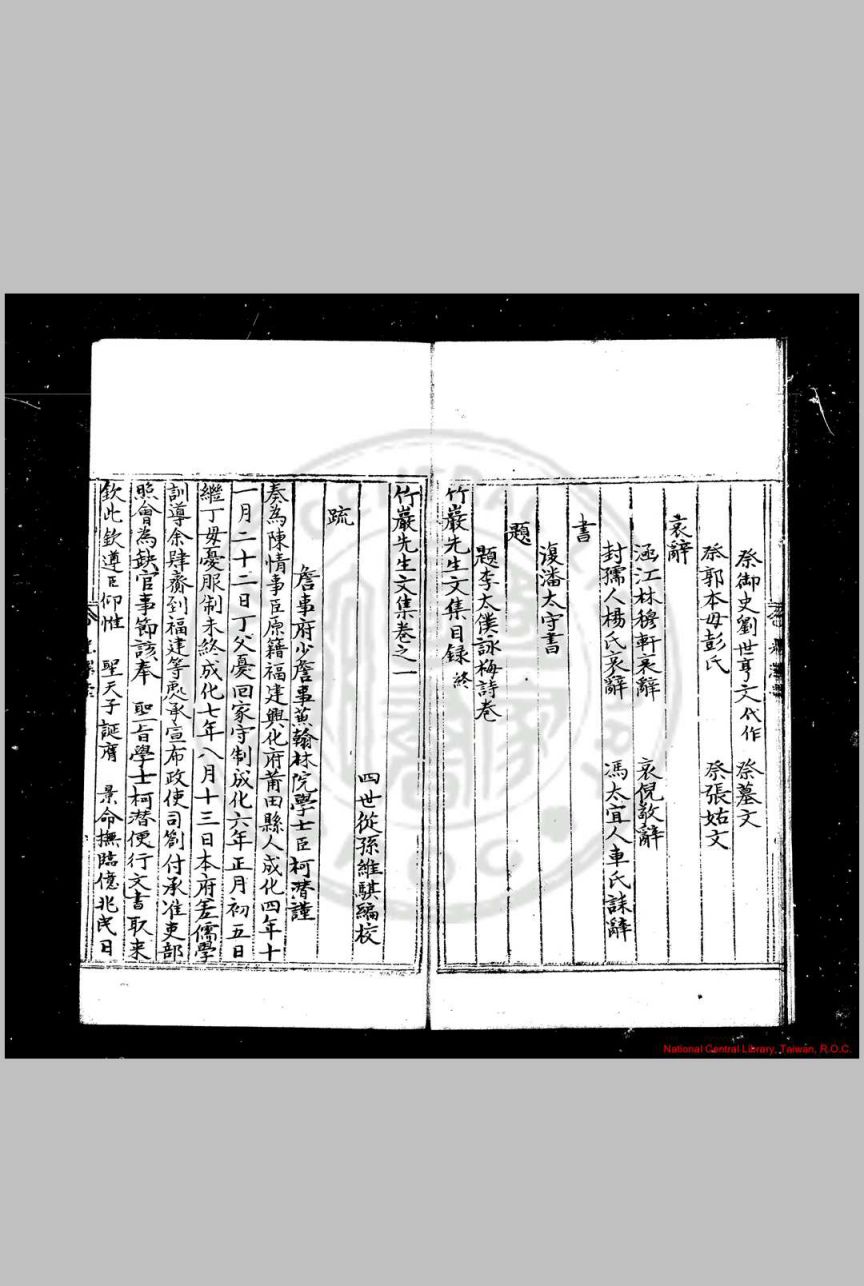 祭御史劉世亨文代作 祭墓文
祭郭本母彭氏 祭張姑文
哀辭
涵江林穆軒哀辭 哀倪敬辭
封孺人楊氏哀辭 馮太宜人車氏誄辭
書
復潘太守書
題
題李太僕詠梅詩卷
竹巖先生文集目録終
竹巖先生文集卷之一
四世從孫維騏編校
疏
詹事府少詹事蒹翰林院學士臣柯潛謹
奏為陳情事臣原籍福建興化府莆田縣人成化四年十
一月二十二日丁父憂回家守制成化六年正月初五日
繼丁母憂服制未終成化七年八月十三日本府差儒學
訓導余肆齎到福建等處承宣布政使司劄付承准吏部
照會為缺官事節該奉 聖旨學士柯潛便行文書取来
欽此欽遵臣仰惟 聖天子誕膺 景命撫臨億兆民日
National Central Library, Taiwan, R.O.C.